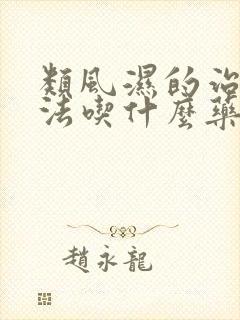 類風濕的治
法喫什麼藥
趙永龍